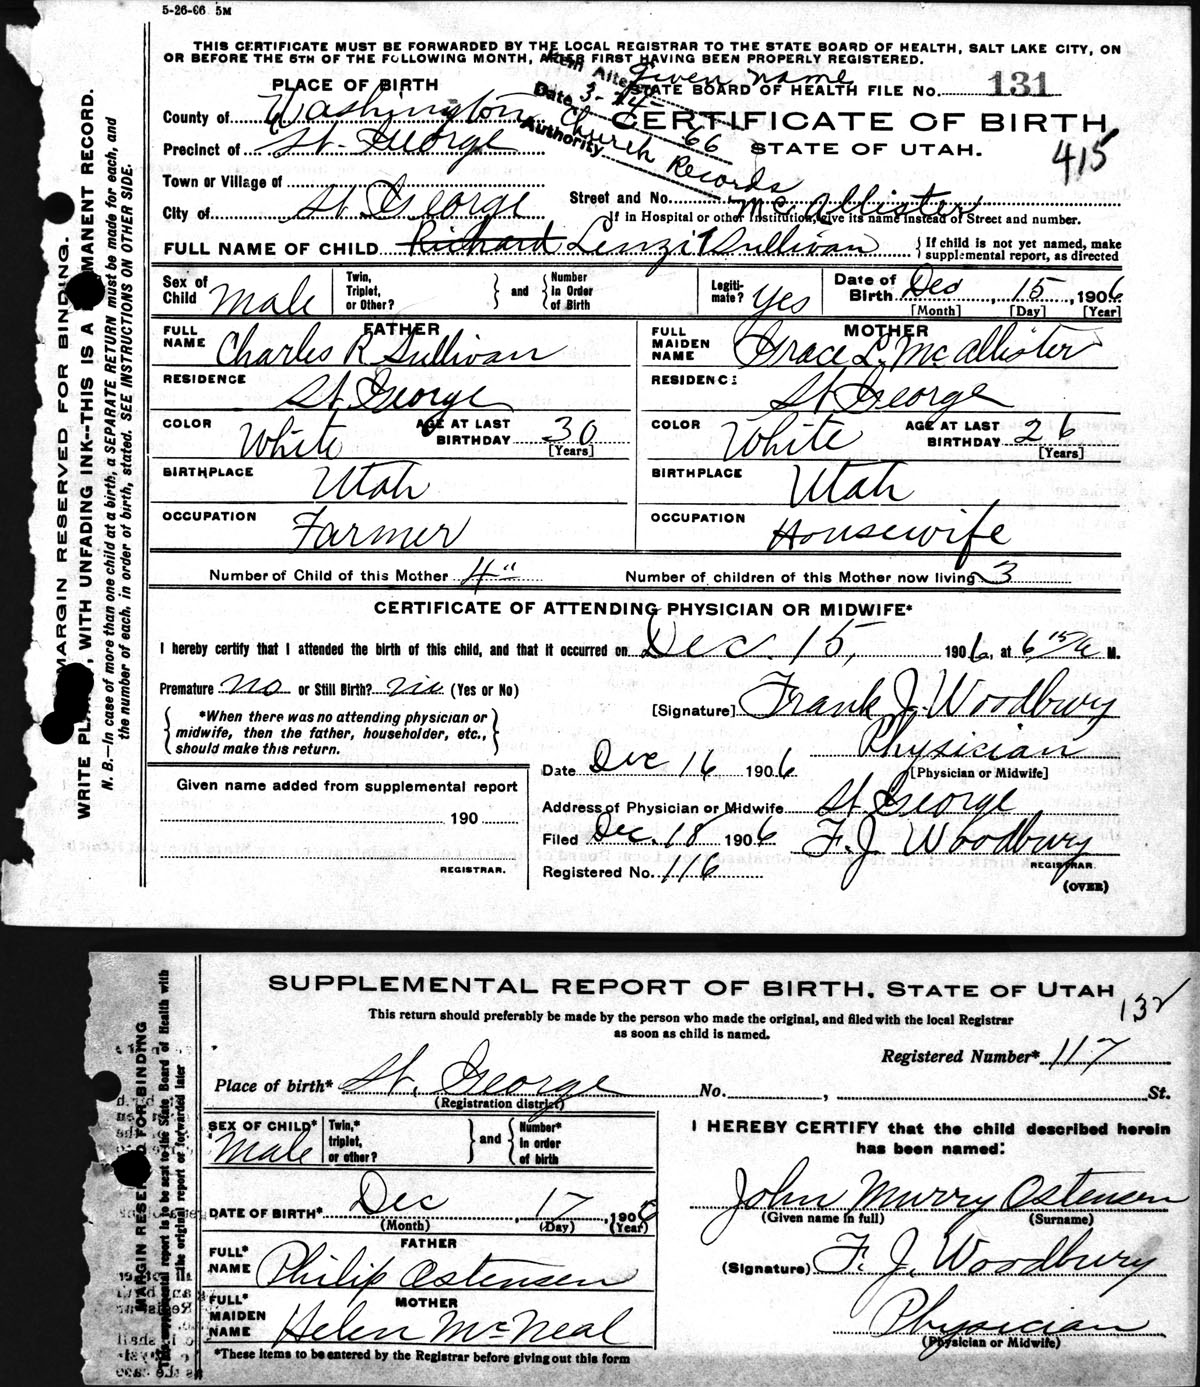 5-26-06 5M
THIS CERTIFICATE MUST BE FORWARDED BY THE LOCAL REGISTRAR TO THE STATE BOARD OF HEALTH, SALT LAKE CITY, ON
OR BEFORE THE 5TH OF THE FOLLOWING MONTH, AFTER FIRST HAVING BEEN PROPERLY REGISTERED.
Given name
PLACE OF BIRTH
STATE BOARD OF HEALTH FILE No. 131
Date 3-24-66
Authority Church Records
County of Washington
CERTIFICATE OF BIRTH
Precinct of St. George
STATE OF UTAH.
415
Town or Village of
Street and No.
City of St George
If in Hospital or other Institution, give its name instead of Street and number.
McAllister
FULL NAME OF CHILD Richard Lenzi Sullivan
If child is not yet named, make supplemental report, as directed
Sex of Child Male
Twin, Triplet, or Other?
and
Number in Order of Birth
Legiti-mate? Yes
Date of Birth Dec 15, 1906
[Month] [Day] [Year]
FATHER
FULL NAME Charles R Sullivan
RESIDENCE St George
COLOR White
AGE AT LAST BIRTHDAY 30
[Years]
BIRTHPLACE Utah
OCCUPATION Farmer
MOTHER
FULL MAIDEN NAME Grace L. McAllister
RESIDENCE St George
COLOR White
AGE AT LAST BIRTHDAY 26
[Years]
BIRTHPLACE Utah
OCCUPATION Housewife
Number of Child of this Mother 4"
Number of children of this Mother now living 3
CERTIFICATE OF ATTENDING PHYSICIAN OR MIDWIFE*
I hereby certify that I attended the birth of this child, and that it occurred on Dec. 15, 1906, at 6 15/a M.
Premature no or Still Birth? no (Yes or No)
[Signature] Frank J. Woodbury
*When there was no attending physician or
midwife, then the father, householder, etc.,
should make this return.
Physician
[Physician or Midwife]
Date Dec 16 1906
Given name added from supplemental report
190
REGISTRAR.
Address of Physician or Midwife St George
Filed Dec. 18 1906 F. J. Woodbury
REGISTRAR.
Registered No. 116
(OVER)
MARGIN RESERVED FOR BINDING.
WITH UNFADING INK--THIS IS A MANENT RECORD.
N. B.--In case of more than one child at a birth, a SEPARATE RETURN must be made for each, and
the number of each, in order of birth, stated. SEE INSTRUCTIONS ON OTHER SIDE.
SUPPLEMENTAL REPORT OF BIRTH, STATE OF UTAH
132
This return should preferably be made by the person who made the original, and filed with the local Registrar
as soon as child is named.
Registered Number* 117
Place of birth* St. George No. , St.
(Registration district)
SEX OF CHILD* Male
Twin,* triplet, or other?
and
Number* in order of birth
DATE OF BIRTH* Dec, 17, 1906
(Month) (Day) (Year)
FATHER
FULL* NAME Philip Ostensen
MOTHER
FULL* MAIDEN NAME Helen McNeal
*These items to be entered by the Registrar before giving out this form
I HEREBY CERTIFY that the child described herein
has been named:
John Murry Ostensen
(Given name in full) (Surname)
(Signature) F. J. Woodbury
Physician
(Physician or Midwife)